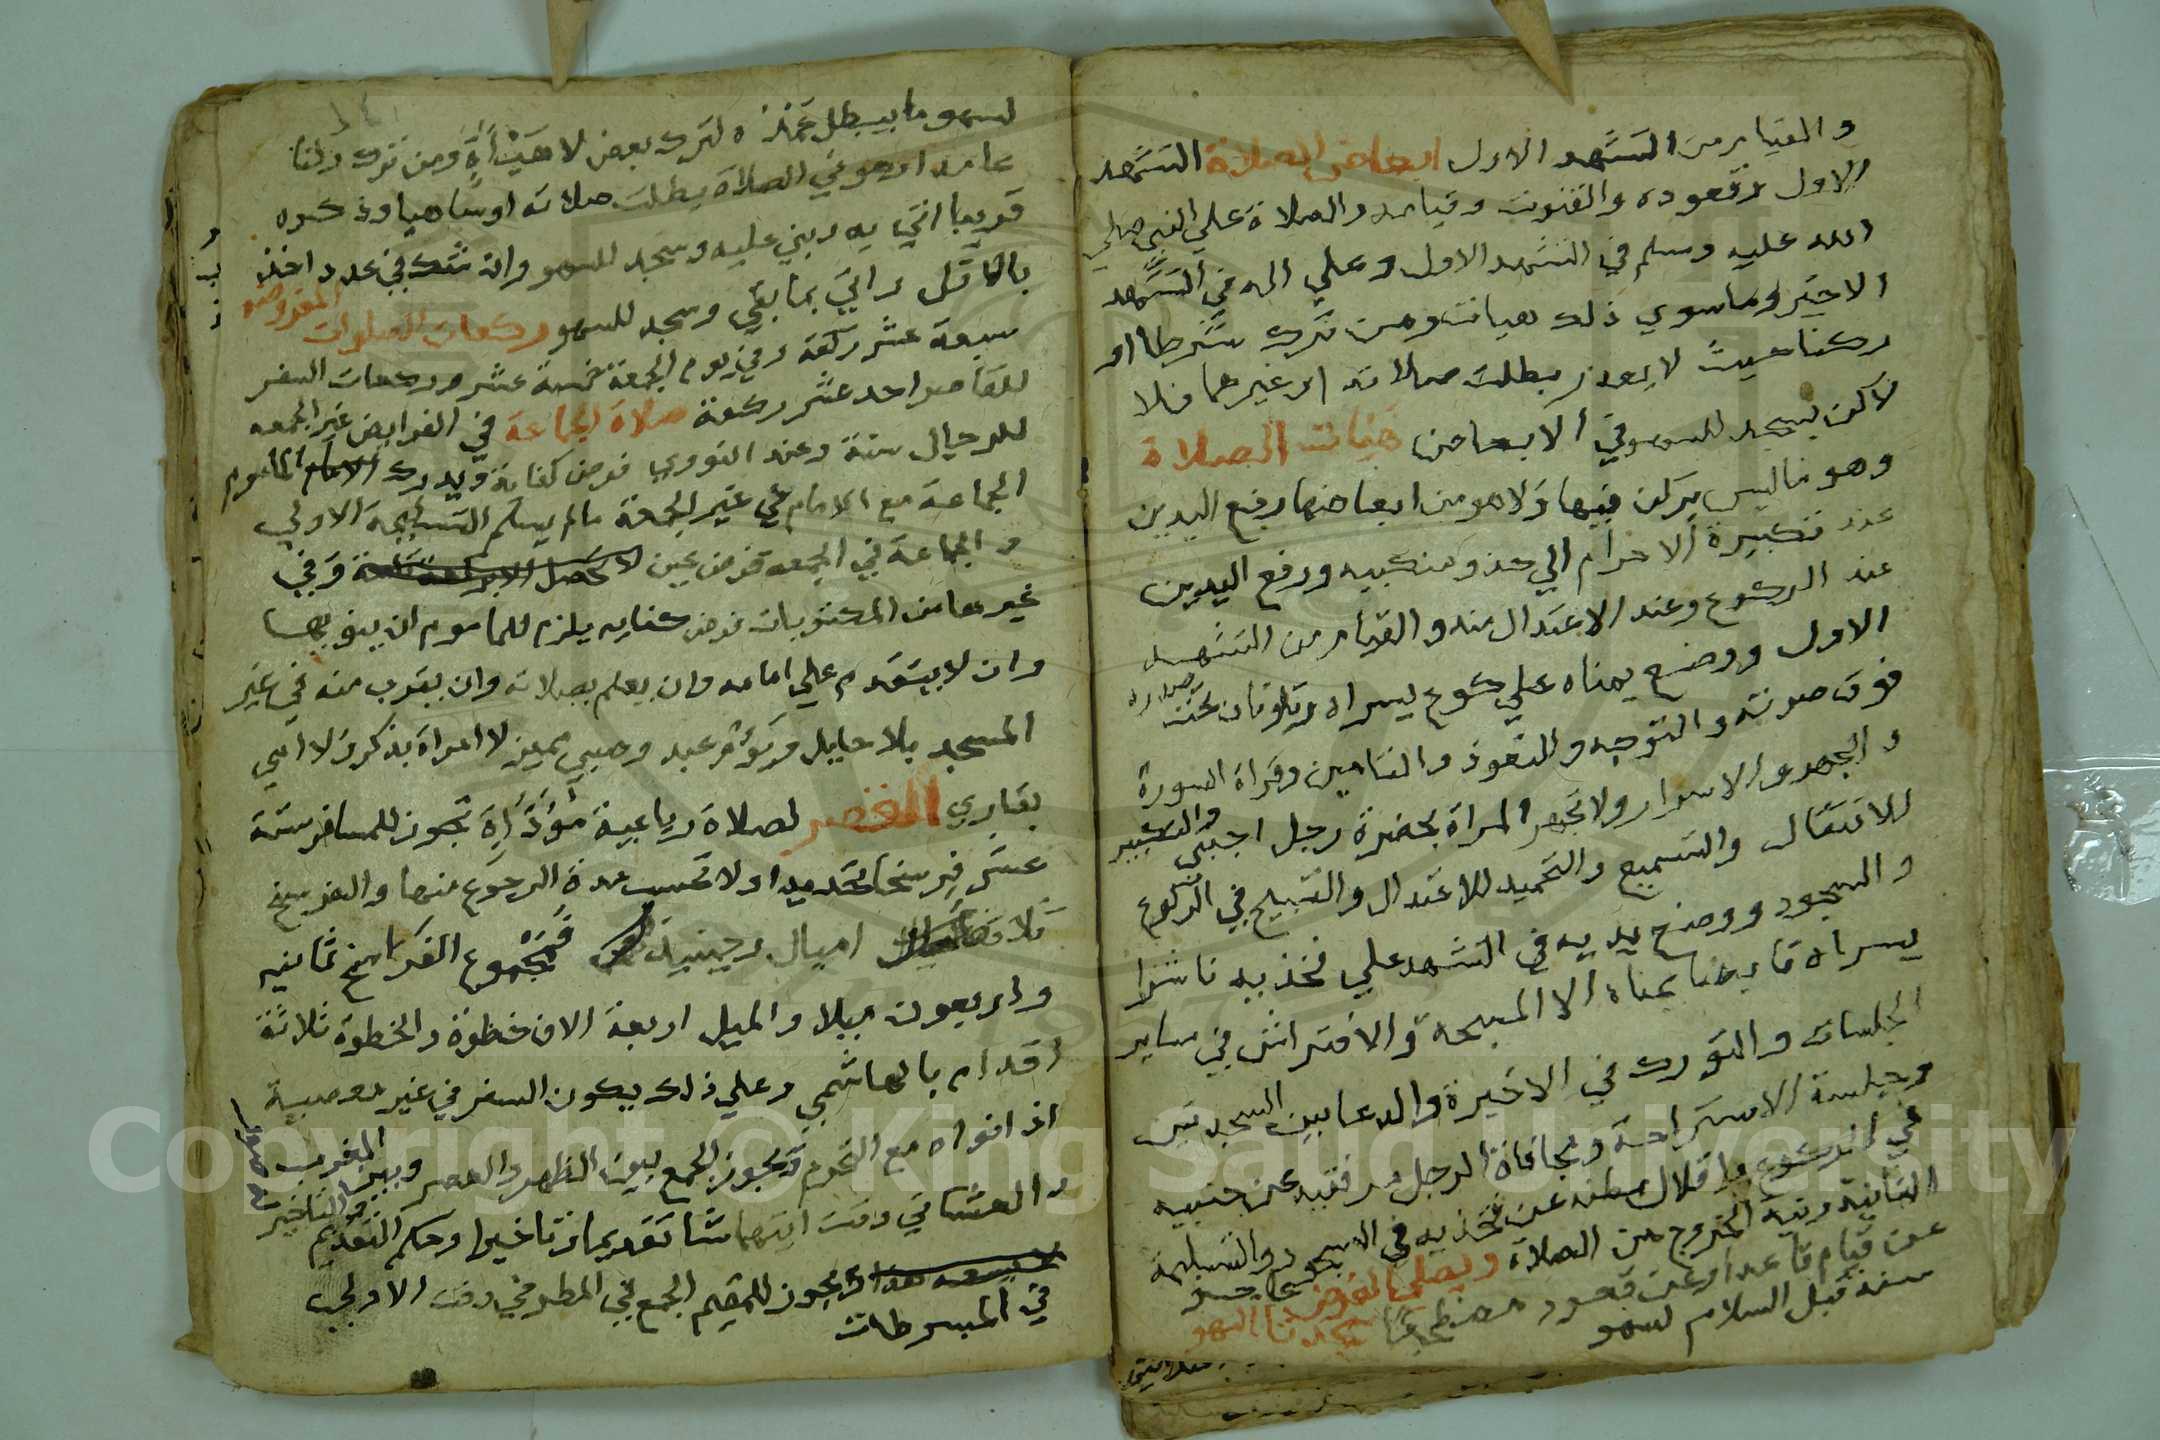 والقيام من التشهد الاول ابعاض الصلاة التشهد
الاول وقعوده والقنوت وقيامه والصلاة علي النبي صلي
الله عليه وسلم في التشهد الاول وعلي اله في التشهد
الاخير وما سوي ذلك هيات ومن ترك شرطا او
ركنا حيث لا يعذر بطلت صلاته او غيرهما فلا
لاكن يسجد للسهو في الابعاض هيات الصلاة
وهو ما ليس بركن فيها ولا هو من ابعاضها رفع اليدين
عند تكبيرة الاحرام الي حذو منكبيه ورفع اليدين
عند الركوع وعند الاعتدال منه والقيام من التشهد
الاول ووضع يمناه علي كوع يسراه ويكونان تحت صدره
فوق سرته والتوجه والتعوذ والتامين وقراة السورة
والجهر والاسرار ولا تجهر المراة بحضرة رجل اجنبي والتكبير
للانتقال والتسميع والتحميد للاعتدال والتسبيح في الركوع
والسجود ووضع يديه في التشهد علي فخذيه ناشرا
يسراه قابضا يمناه الا المسبحة والافتراش في ساير
الجلسات والتورك في الاخيرة والدعا بين السجدتين
وجلسة الاستراحة ومجافاة الرجل مرفقيه عن جنبيه
في الركوع واقلال بطنه عن فخذيه في السجود والتسليمة
الثانية ونية الخروج من الصلاة ويصلي الفرض عاجز
عن قيام قاعدا وعن قعود مضطجعا سجدتا السهو
سنة قبل السلام لسهو
لسهو ما يبطل عمده لترك بعض لا هيأة ومن ترك ركنا
عامدا وهو في الصلاة بطلت صلاته او ساهيا وذكره
قريبا اتي به وبني عليه وسجد للسهو وان شك في عدد اخذ
بالاقل واتي بما بقي وسجد للسهو ركعات الصلوات المفروضة
سبعة عشر ركعة وفي يوم الجمعة خمسة عشر وركعات السفر
للقاصر احد عشر ركعة صلاة الجماعة في الفرايض غير الجمعه
للرجال سنة وعند النووي فرض كفاية ويدرك الماموم
الجماعة مع الامام في غير الجمعة ما لم يسلم التسليمة الاولي
والجماعة في الجمعه فرض عين وفي
غيرها من المكتوبات فرض كفايه يلزم للماموم ان ينوي
وان لا يتقدم علي امامه وان يعلم بصلاته وان يقرب منه في غير
المسجد بلا حايل ويؤم عبد وصبي مميز لا امراة بذكر ولا امي
بقاري القصر لصلاة رباعية مؤداة تجوز للمسافر ستة
عشر فرسخا تحديدا ولا تحسب مدة الرجوع منها والفرسخ
ثلاثة اميال فمجموع الفراسخ ثمانيه
واربعون ميلا والميل اربعة الاف خطوة والخطوة ثلاثة
اقدام بالهاشمي وعلي ذلك يكون السفر في غير معصية
ويجوز الجمع بين الظهر والعصر وبين المغرب
والعشا في وقت ايتهما شا تقديما وتاخيرا وحكم التقديم والتاخير
ويجوز للمقيم الجمع في المطر في وقت الاولي
في المبسوطات